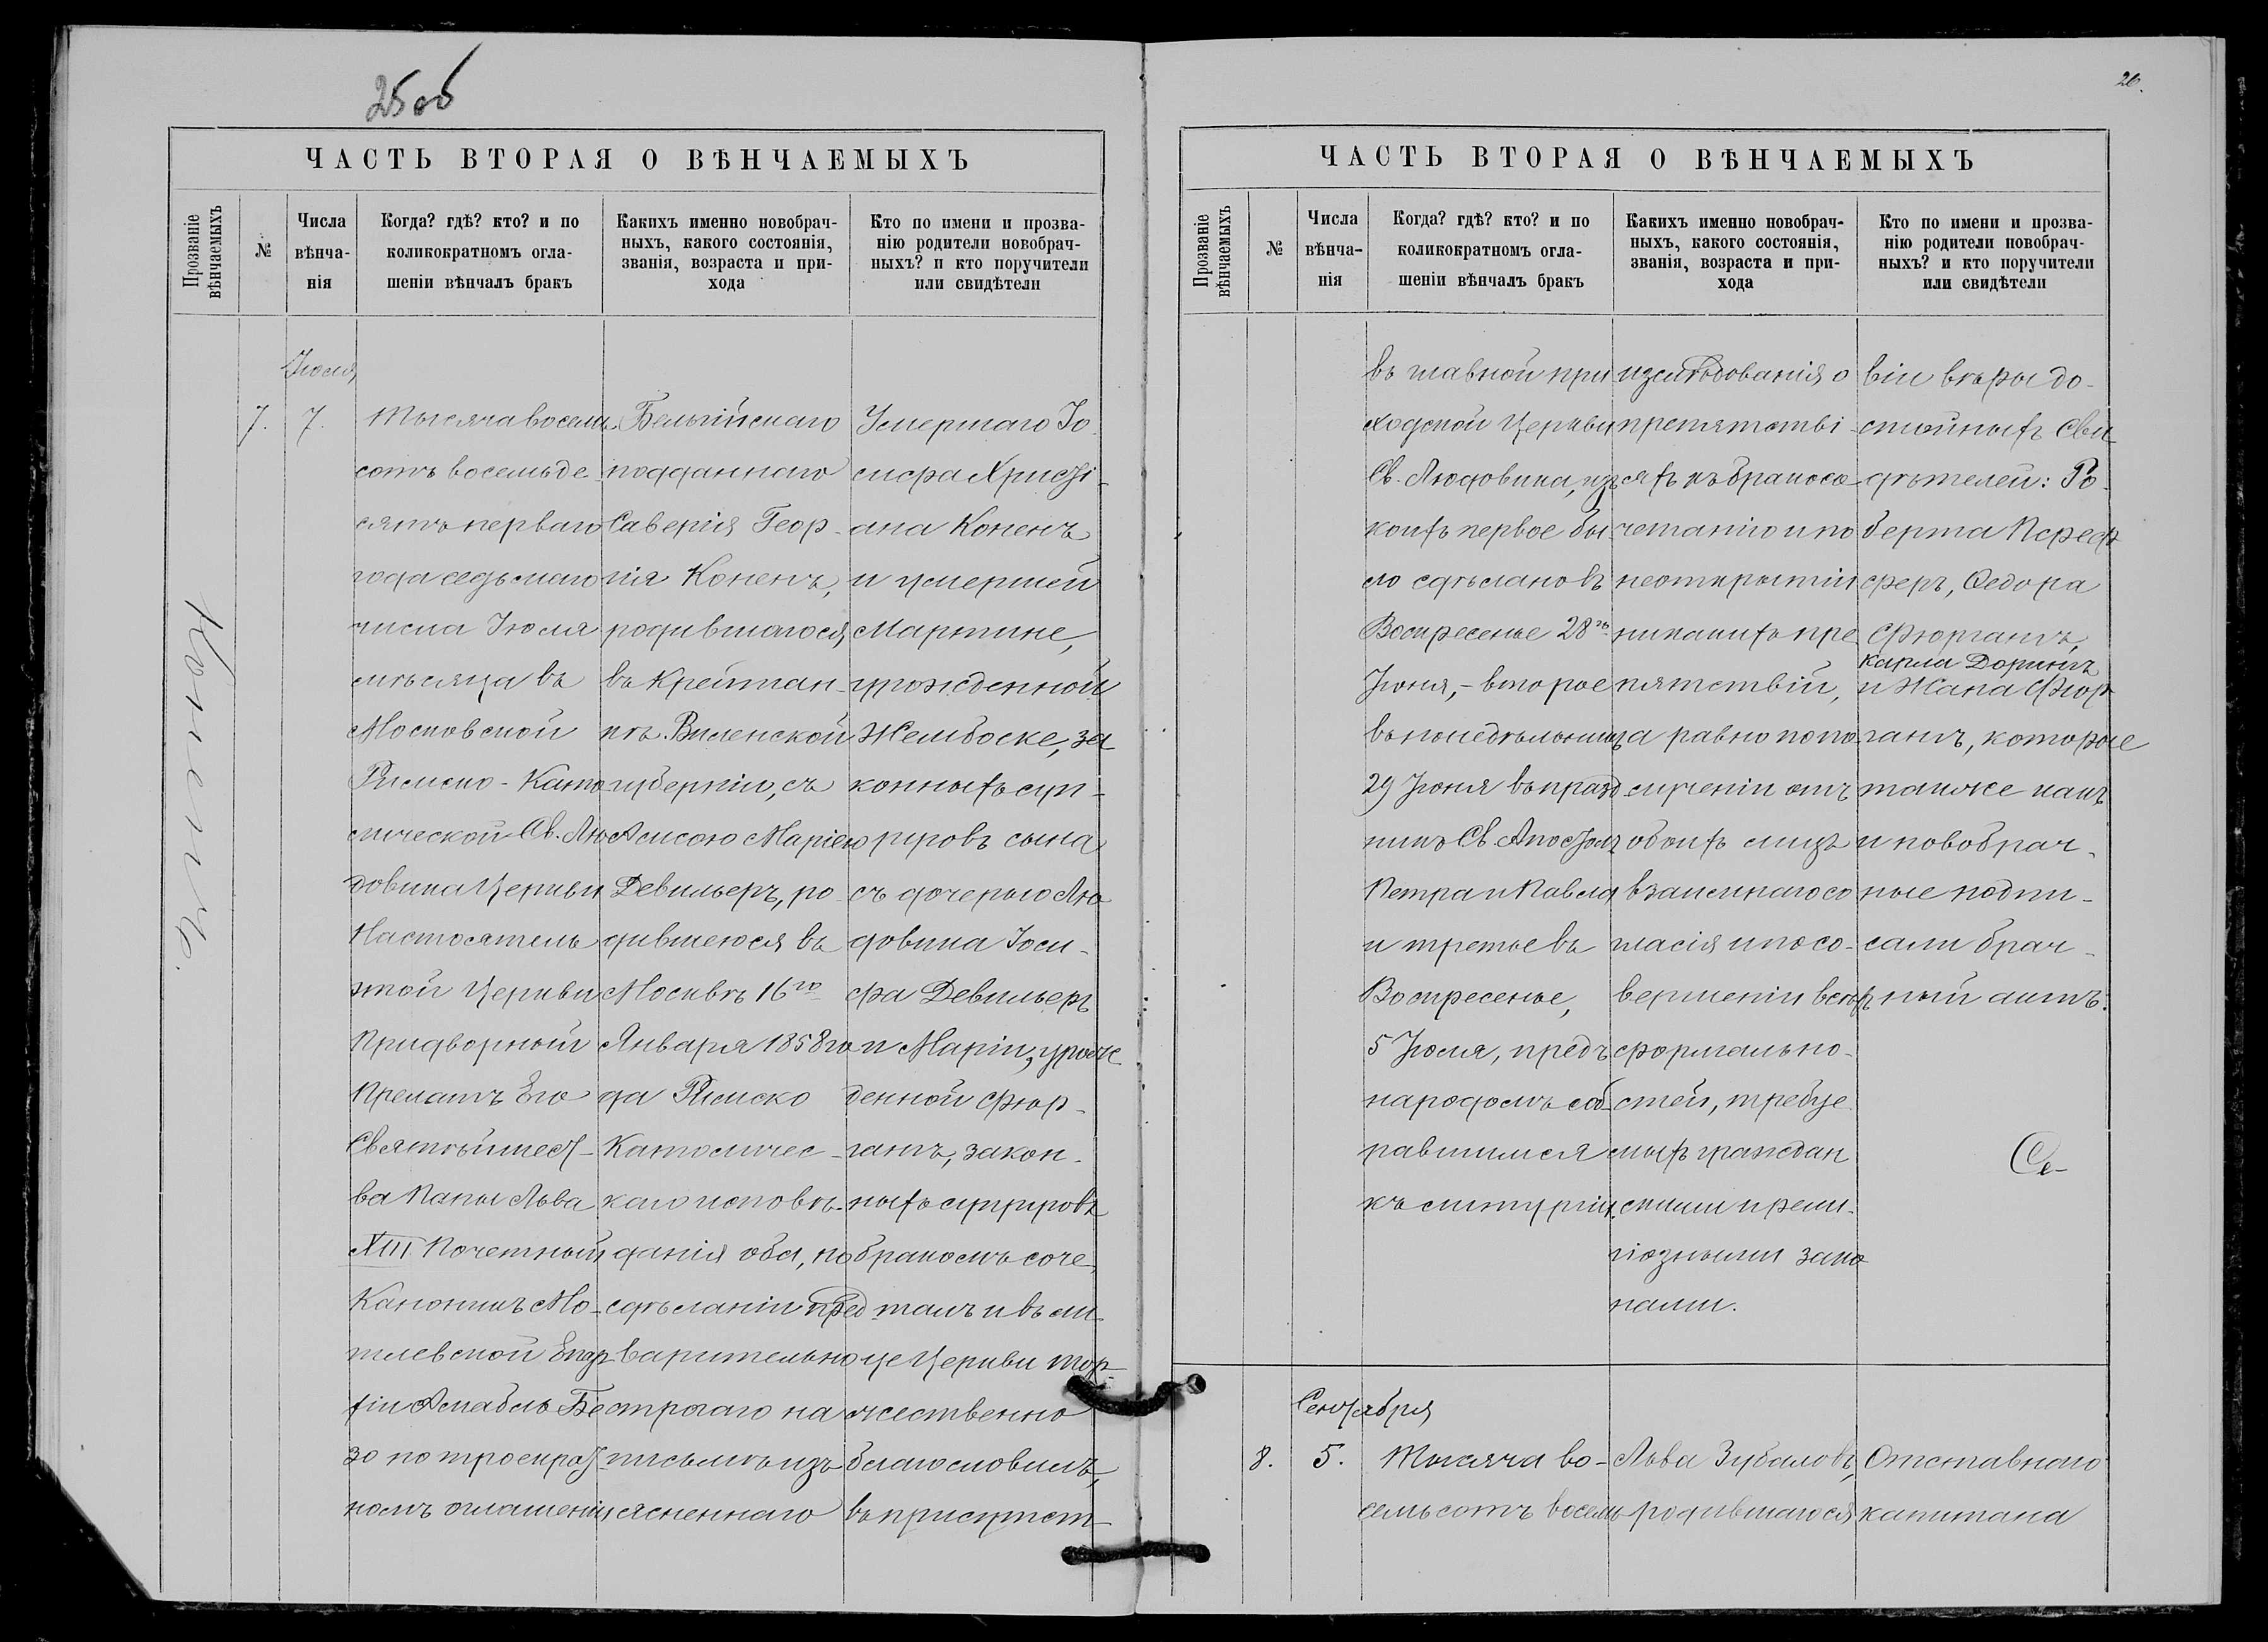 25 об
ЧАСТЬ ВТОРАЯ О ВѢНЧАЕМЫХЪ
Прозваніе
вѣнчаемыхъ
№
Числа
вѣнча-
нія
Когда? гдѣ? кто? и по
коликократномъ огла-
шеніи вѣнчалъ бракъ
Какихъ именно новобрач-
ныхъ, какого состоянія,
званія, возраста и при-
хода
Кто по имени и прозва-
нію родители новобрач-
ныхъ? и кто поручители
или свидѣтели
Коненъ.
Іюля
7.
7.
Тысяча восемь
сотъ восемьде-
сятъ перваго
года седьмаго
числа Іюля
мѣсяца въ
Московской
Римско-Като
лической Св. Лю
довика Церкви
Настоятель
этой Церкви
Придворный
Прелатъ Его
Святѣйшест-
ва Папы Льва
XIII Почетный
Каноникъ Мо-
гилевской Епар
хіи Амабль Бе
зо по троекрат
номъ оглашеніи
Бельгійскаго
подданнаго
Саверія Геор-
гія Коненъ,
родившагося,
въ Крейтан-
кѣ. Виленской
губерніи, съ
Алисою Маріею
Девильеръ, ро-
дившеюся въ
Москвѣ 16го
Января 1858 го
да Римско
Католичес-
каго исповѣ-
данія оба, по
сдѣланіи пред
варительно
строгаго на
письмѣ изъ
ясненнаго
Умершаго Іо
сифа Христі-
ана Коненъ
и умершей
Мартине,
урожденной
Жембоске, за
конныхъ суп-
руговъ сына
съ дочерью Лю
довика Іоси-
фа Девильеръ
и Маріи, урож
денной Фюр-
ганъ, закон-
ныхъ супруговъ
бракомъ соче-
талъ и въ ли-
це Церкви тор-
жественно
благословилъ,
въ присутст-
26.
ЧАСТЬ ВТОРАЯ О ВѢНЧАЕМЫХЪ
Прозваніе
вѣнчаемыхъ
№
Числа
вѣнча-
нія
Когда? гдѣ? кто? и по
коликократномъ огла-
шеніи вѣнчалъ бракъ
Какихъ именно новобрач-
ныхъ, какого состоянія,
званія, возраста и при-
хода
Кто по имени и прозва-
нію родители новобрач-
ныхъ? и кто поручители
или свидѣтели
въ главной при
ходской Церкви
Св. Людовика, изъ
коихъ первое бы
ло сдѣлано въ
Воскресенье 28го
Іюня, - второе
въ понедѣльникъ
29 Іюня въ празд
никъ Св. Апостол
Петра и Павла
и третье въ
Воскресенье,
5 Іюля, предъ
народомъ соб-
равшимся
къ литургіи.
изслѣдованія о
препятстві-
яхъ къ бракосо-
четанію и по
неоткрытіи
никакихъ пре
пятствій,
а равно по по-
лученіи отъ
обоихъ лицъ
взаимнаго со
гласія и по со-
вершеніи всѣхъ
формально-
стей, требуе
мыхъ граждан
скими и рели-
гіозными зако
нами.
віи вѣры до-
стойныхъ Сви
дѣтелей: Ро-
берта Пфеф
феръ, Федора
Фюрганъ,
Карла Дорингъ
и Жана Фюр
ганъ, которые
также какъ
и новобрач-
ные подпи-
сали брач-
ный актъ.
Се-
Сентября
8.
5.
Тысяча во-
семьсотъ восемь
Льва Зубаловъ,
родившагося
Отставнаго
капитана